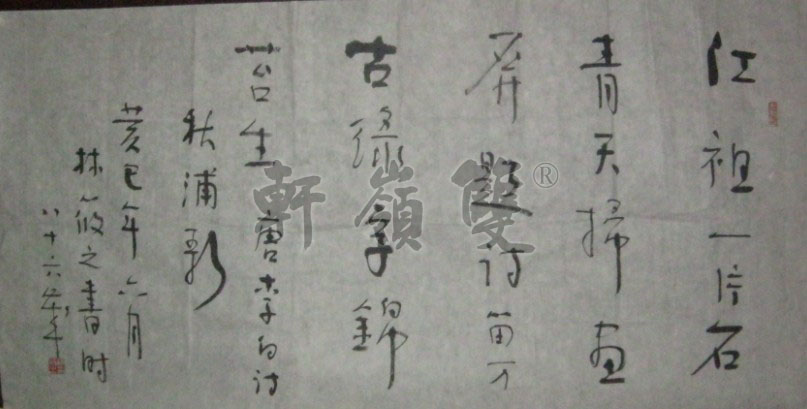 江祖一片石
青天掃画
屏題诗留万
古绿字錦
苔生 唐李白诗
秋浦歌
癸巳年六月
林筱之書时
八十六
雙嶺軒®